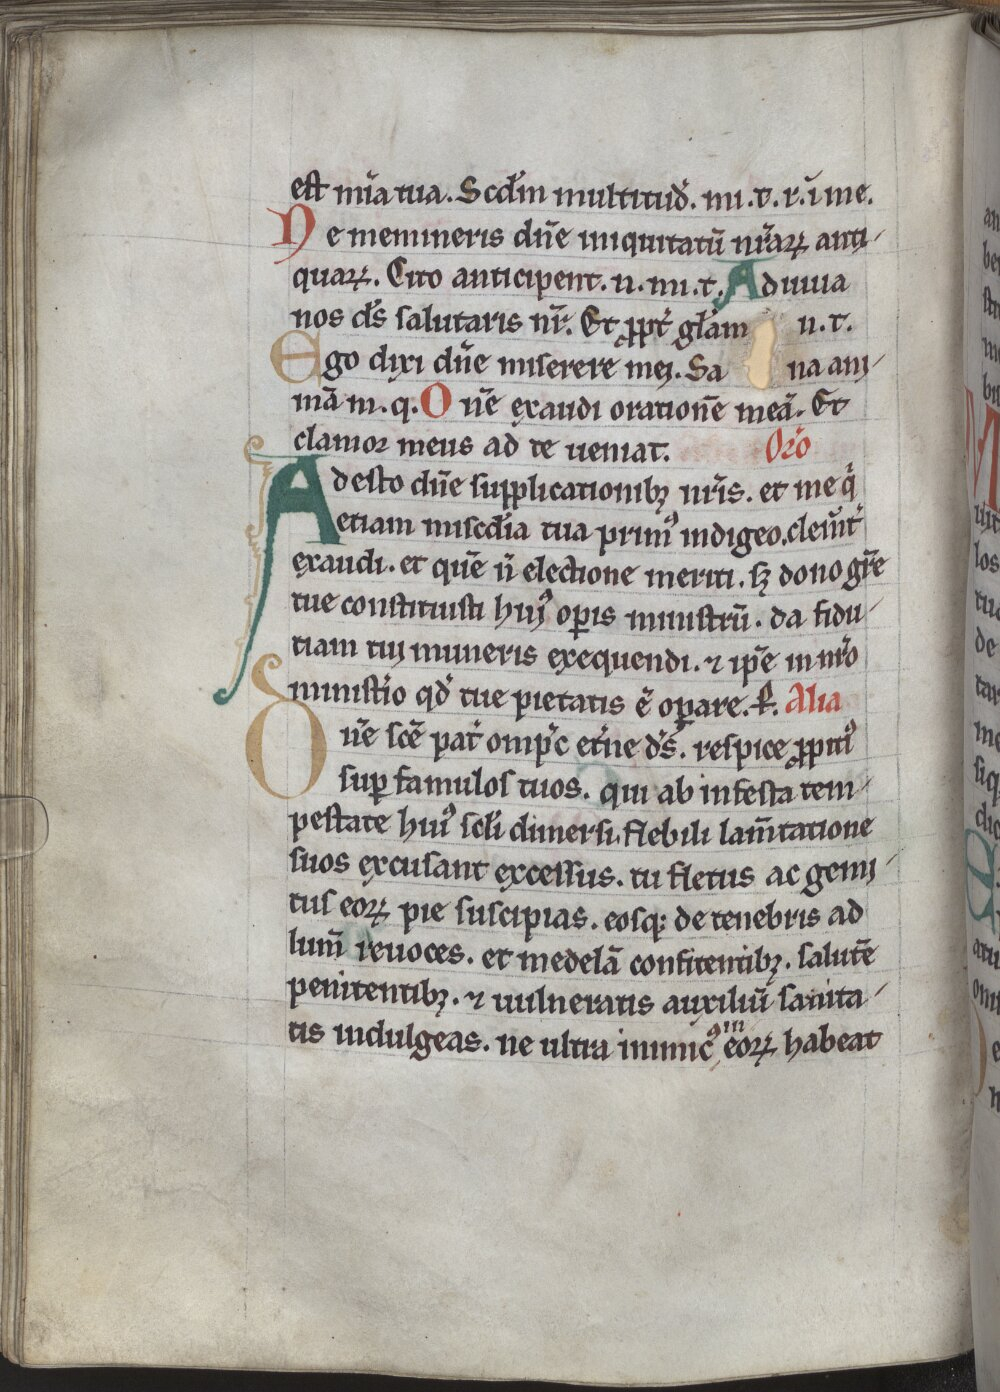 est mi̅a tua. Scd̅m multitud̕. mi. t. r. i̅ me.
Ne memineris dn̅e iniquitatu̅ nr̅aꝝ anti
quaꝝ. Cito anticipent. n. mi. t. Adiuua
nos ds̅ salutaris nr̅. Et ꝓpt̕ gl̅am n. t.
Ego dixi dn̅e miserere mei. Sa na ani
ma̅ m. q. O ne̅ exaudi oratione̅ mea̅. Et
clamor meus ad te ueniat. Oro̅
Adesto dn̅e supplicationibꝫ nr̅is. et me q̕
etiam miscd̅ia tua primꝰ indigeo. clem̅t̕
exaudi. et que̅ n̅ electione meriti. sꝫ dono gr̅e
tue constituisti huiꝰ oꝑis ministru̅. da fidu
tiam tui muneris exequendi. ⁊ ip̅e in nr̅o
minist̕io qd̕ tue pietatis e̅ oꝑare. P̲. Alia
Dn̅e sce̅ pat̕ omp̅c et̕ne ds̅. respice ꝓpitiꝰ
suꝑ famulos tuos. qui ab infesta tem
pestate huiꝰ scl̅i dimersi. flebili lam̅tatione
suos excusant excessus. tu fletus ac gemi
tus eoꝝ pie suscipias. eosqꝫ de tenebris ad
lum̅ reuoces. et medela̅ confitentibꝫ. salute̅
penitentibꝫ. ⁊ uulneratis auxiliu̅ sanita
tis indulgeas. ne ultra inimicꝰ in eoꝝ habeat